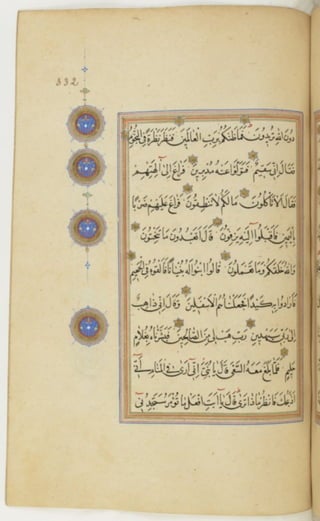 332
دُونَ اللهِ تُرِيدُونَ فَمَا ظَنُّكُمْ بِرَبِّ الْعَالَمِينَ فَنَظَرَ نَظْرَةً فِي النُّجُومِ
فَقَالَ إِنِّي سَقِيمٌ فَتَوَلَّوْا عَنْهُ مُدْبِرِينَ فَرَاغَ إِلَى آلِهَتِهِمْ
فَقَالَ أَلَا تَأْكُلُونَ مَا لَكُمْ لَا تَنْطِقُونَ فَرَاغَ عَلَيْهِمْ ضَرْبًا
بِالْيَمِينِ فَأَقْبَلُوا إِلَيْهِ يَزِفُّونَ قَالَ أَتَعْبُدُونَ مَا تَنْحِتُونَ
وَاللهُ خَلَقَكُمْ وَمَا تَعْمَلُونَ قَالُوا ابْنُوا لَهُ بُنْيَانًا فَأَلْقُوهُ فِي الْجَحِيمِ
فَأَرَادُوا بِهِ كَيْدًا فَجَعَلْنَاهُمُ الْأَسْفَلِينَ وَقَالَ إِنِّي ذَاهِبٌ
إِلَى رَبِّي سَيَهْدِينِ رَبِّ هَبْ لِي مِنَ الصَّالِحِينَ فَبَشَّرْنَاهُ بِغُلَامٍ
حَلِيمٍ فَلَمَّا بَلَغَ مَعَهُ السَّعْيَ قَالَ يَا بُنَيَّ إِنِّي أَرَى فِي الْمَنَامِ أَنِّي
أَذْبَحُكَ فَانْظُرْ مَاذَا تَرَى قَالَ يَا أَبَتِ افْعَلْ مَا تُؤْمَرُ سَتَجِدُنِي